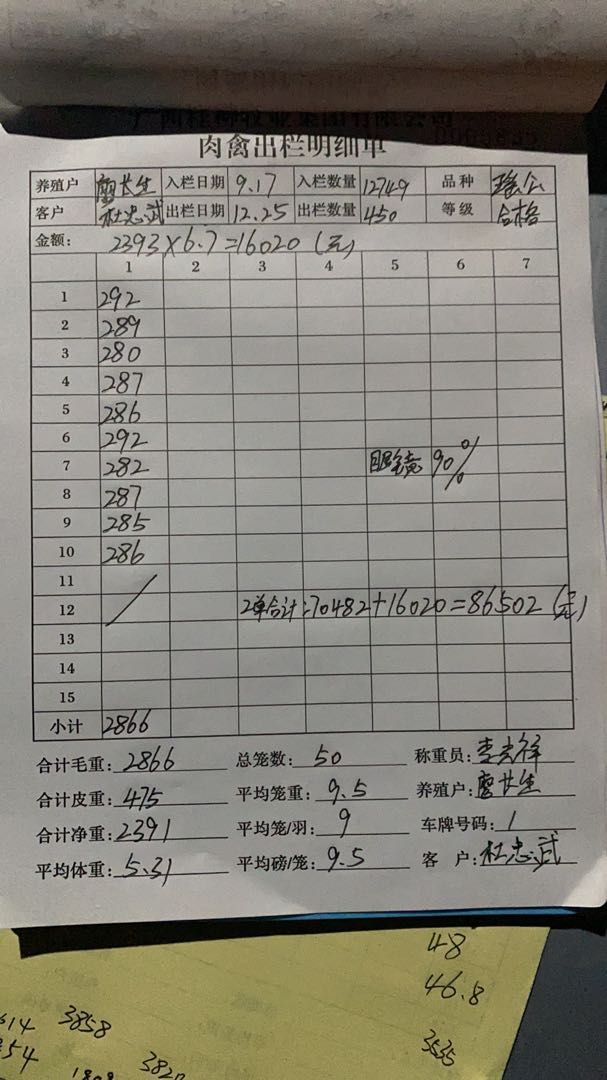 肉禽出栏明细单
养殖户 廖长生 入栏日期 9.17 入栏数量 12749 品种 瑶公
客户 杜忠武 出栏日期 12.25 出栏数量 450 等级 合格
金额: 2393×6.7=16020(元)
1 2 3 4 5 6 7
1 292
2 289
3 280
4 287
5 286
6 292
7 282 眼镜 90%
8 287
9 285
10 286
11
12 2单合计:70482+16020=86502(元)
13
14
15
小计 2866
合计毛重: 2866 总笼数: 50 称重员:
合计皮重: 475 平均笼重: 9.5 养殖户: 廖长生
合计净重: 2391 平均笼/羽: 9 车牌号码: 1
平均体重: 5.31 平均磅/笼: 9.5 客 户: 杜忠武
48
46.8
614 3858 3535
54